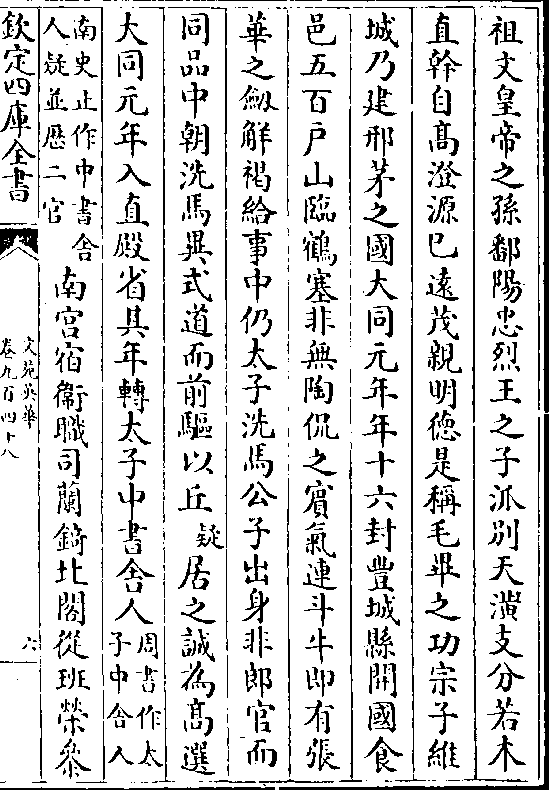 祖文皇帝之孫鄱陽忠烈王之子派別天潢支分若木
直幹自高澄源已遠茂親明德是稱毛畢之功宗子維
城乃建邢茅之國大同元年年十六封豐城縣開國食
邑五百戶山臨鶴塞非無陶侃之賓氣連斗牛即有張
華之劔解褐給事中仍太子洗馬公子出身非郎官而
同品中朝洗馬異式道而前驅以丘疑居之誠為髙選
大同元年入直殿省其年轉太子中書舍人周書作太
子中舍人
南史止作中書舍
人疑並歴二官南宮宿衛職司蘭錡北閣從班榮叅
欽定四庫全書
文苑英華
卷九百四十八
六